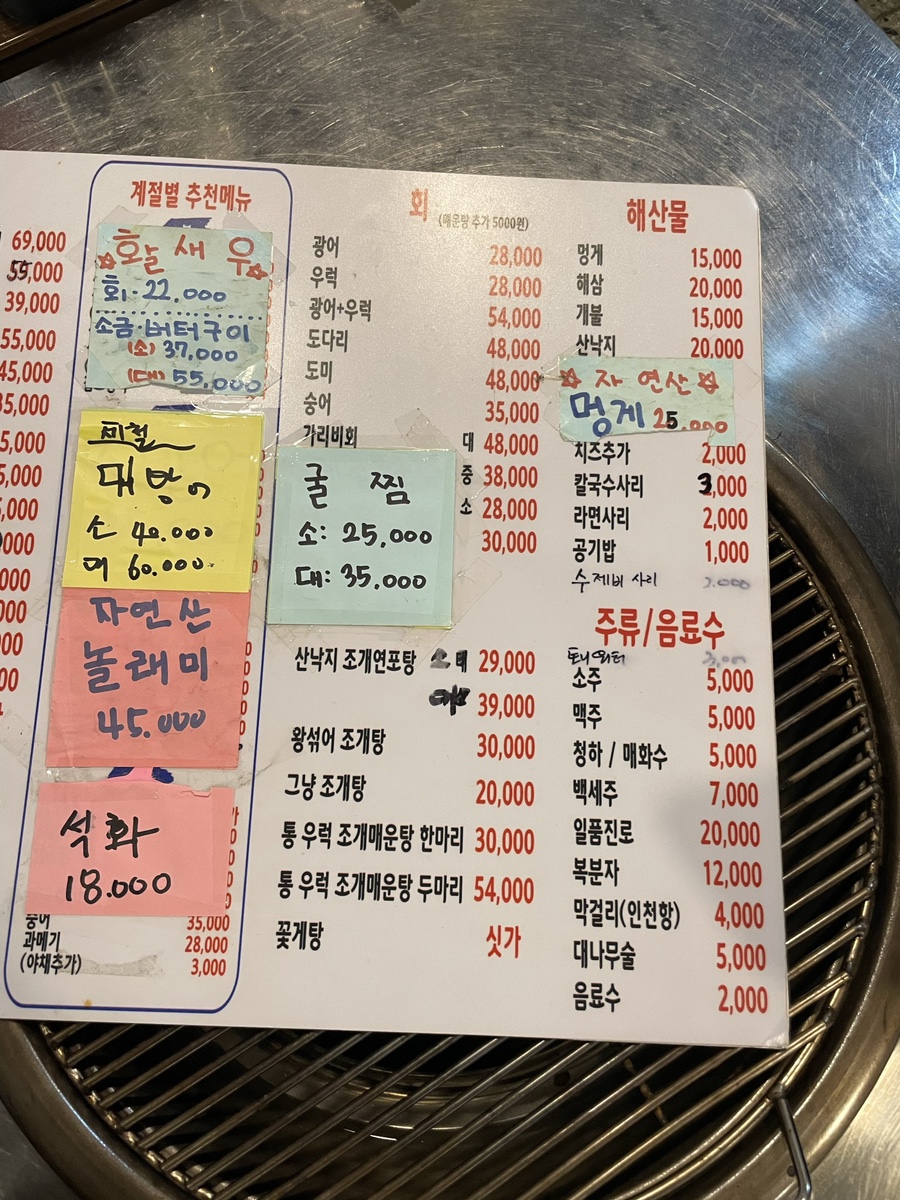 69,000
55,000
39,000
55,000
45,000
35,000
5,000
5,000
5,000
000
000
000
00
00
계절별 추천메뉴
☆활 새 우☆
회 - 22,000
소금·버터구이
(소) 37,000
(대) 55,000
제철
대방어
소 40.000
대 60.000
자연산
놀래미
45.000
석화
18.000
숭어 35,000
과메기 28,000
(야채추가) 3,000
회 (매운탕 추가 5000원)
광어 28,000
우럭 28,000
광어+우럭 54,000
도다리 48,000
도미 48,000
숭어 35,000
가리비회 대 48,000
중 38,000
소 28,000
30,000
굴 찜
소: 25,000
대: 35,000
산낙지 조개연포탕 소 29,000
대 39,000
왕섞어 조개탕 30,000
그냥 조개탕 20,000
통 우럭 조개매운탕 한마리 30,000
통 우럭 조개매운탕 두마리 54,000
꽃게탕 싯가
해산물
멍게 15,000
해삼 20,000
개불 15,000
산낙지 20,000
☆ 자연산 ☆
멍게 25.000
치즈추가 2,000
칼국수사리 3,000
라면사리 2,000
공기밥 1,000
수제비 사리 2.000
주류/음료수
토니워터
소주 5,000
맥주 5,000
청하 / 매화수 5,000
백세주 7,000
일품진로 20,000
복분자 12,000
막걸리(인천항) 4,000
대나무술 5,000
음료수 2,000